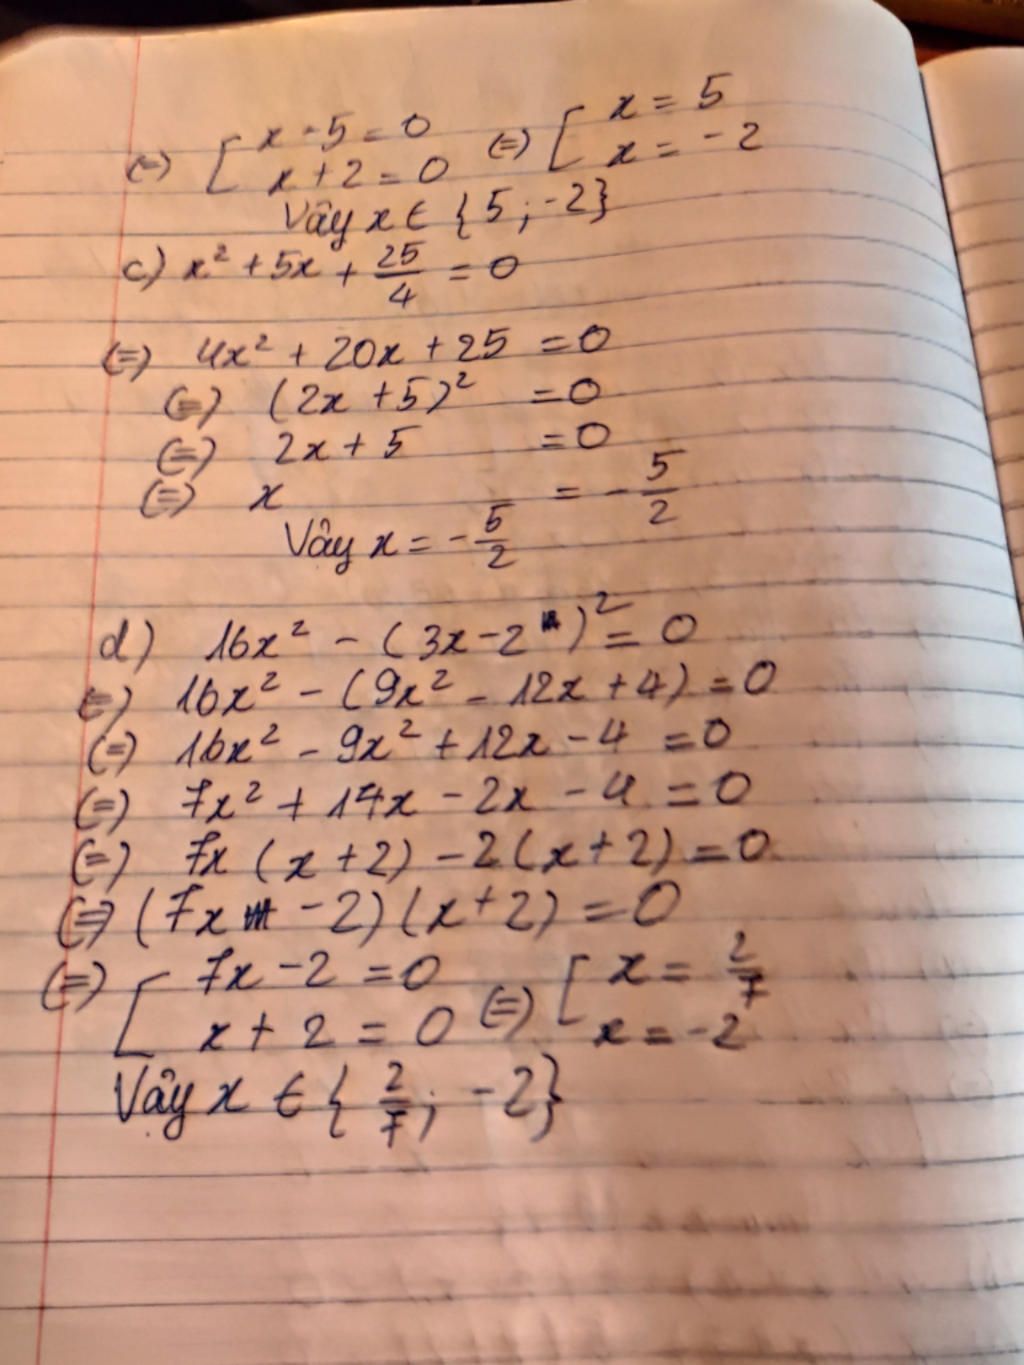 (=) [ x - 5 = 0 (=) [ x = 5
x + 2 = 0 x = -2
Vây x ∈ {5 ; -2}
c) x² + 5x + 25/4 = 0
(=) 4x² + 20x + 25 = 0
(=) (2x + 5)² = 0
(=) 2x + 5 = 0
(=) x = - 5/2
Vây x = - 5/2
d) 16x² - (3x - 2)² = 0
(=) 16x² - (9x² - 12x + 4) = 0
(=) 16x² - 9x² + 12x - 4 = 0
(=) 7x² + 14x - 2x - 4 = 0
(=) 7x (x + 2) - 2 (x + 2) = 0
(=) (7x - 2) (x + 2) = 0
(=) [ 7x - 2 = 0 (=) [ x = 2/7
x + 2 = 0 x = -2
Vậy x ∈ { 2/7 ; -2}